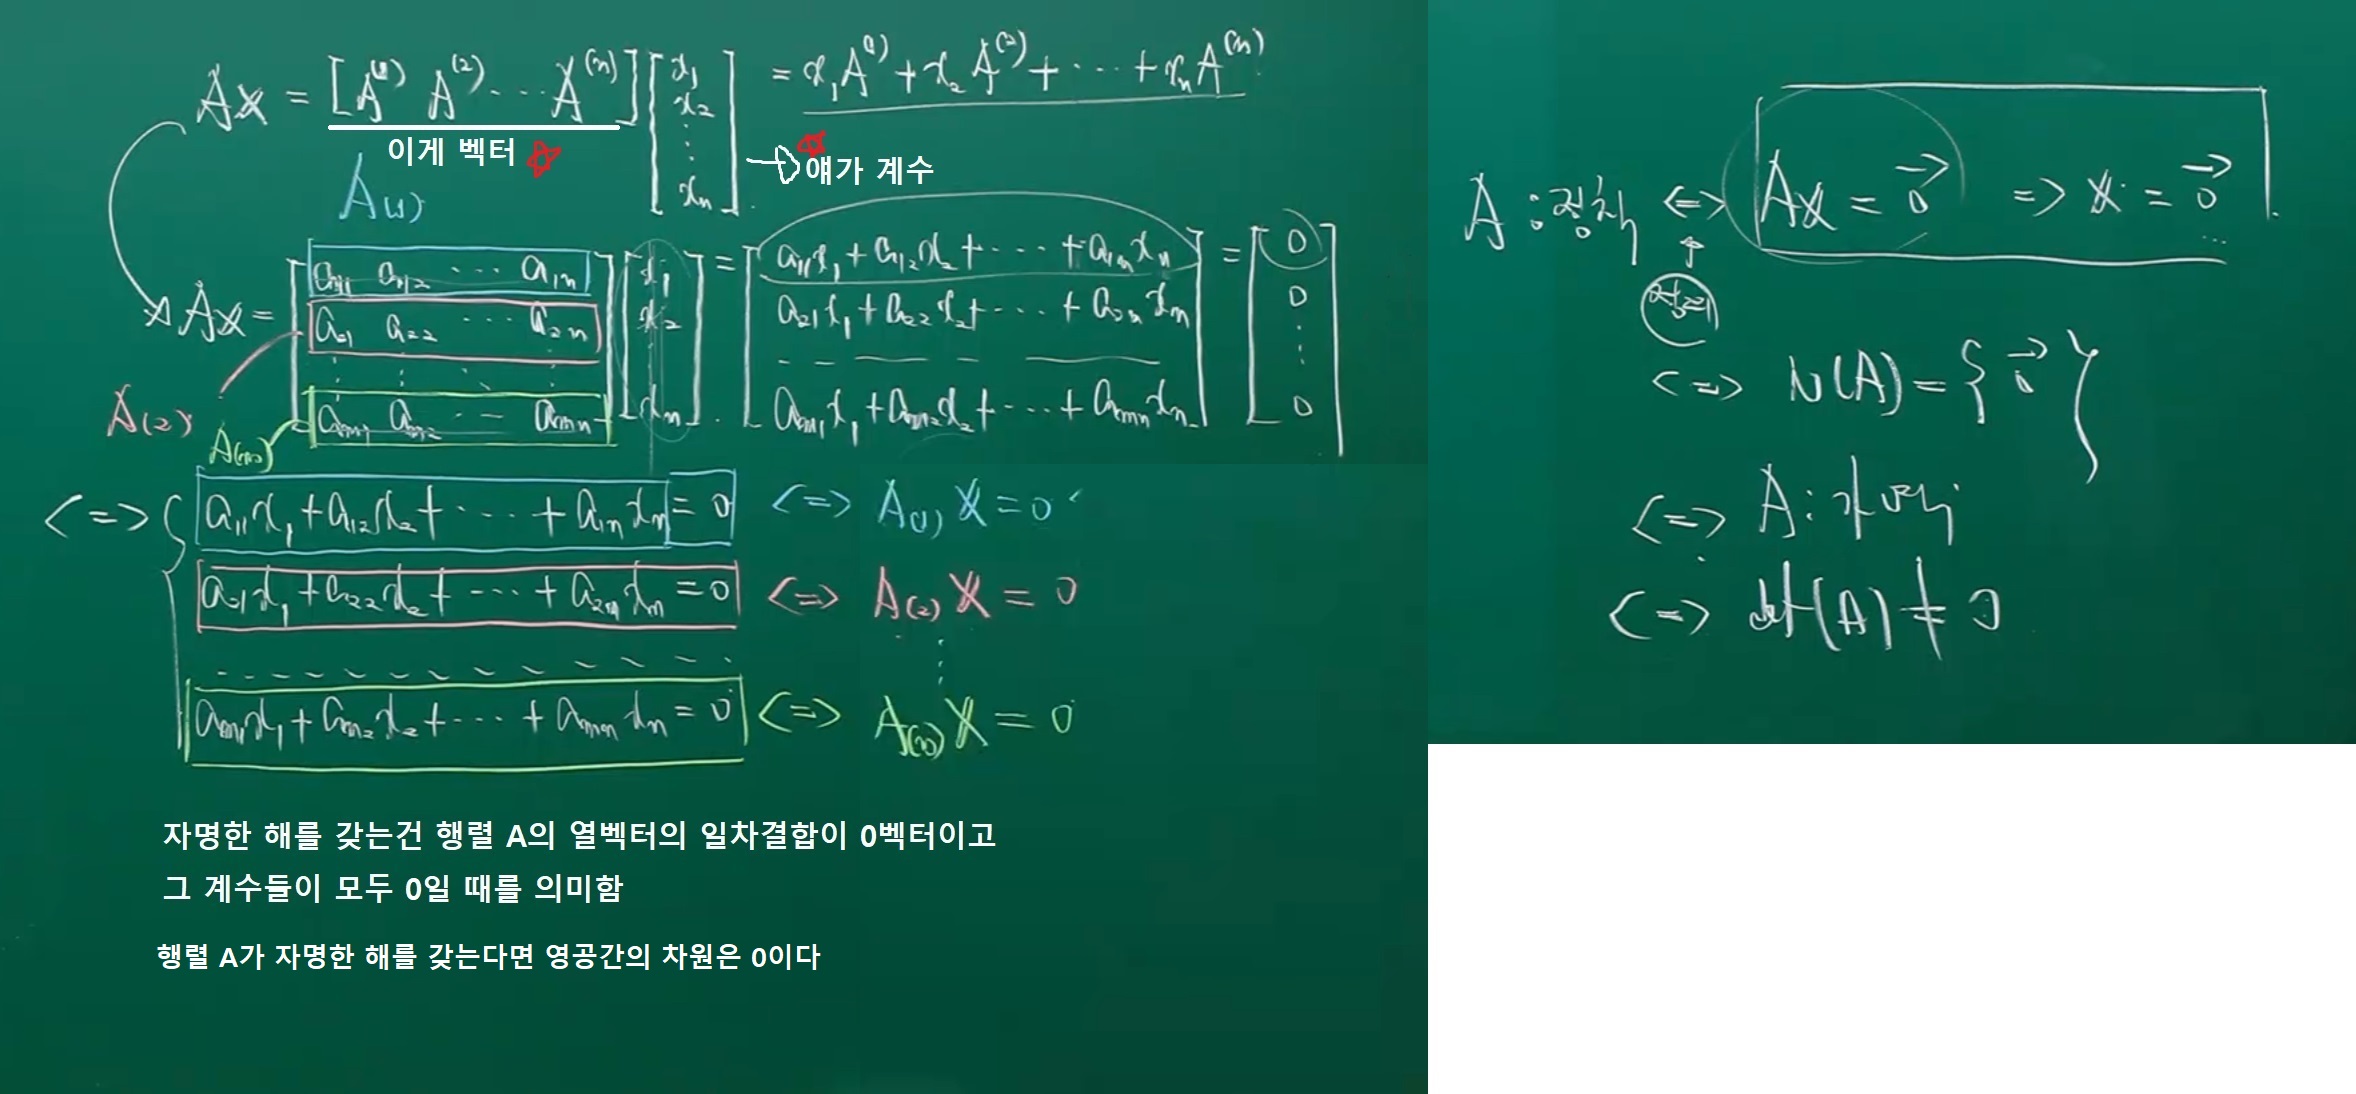 Ax = [A⁽¹⁾ A⁽²⁾ ⋯ A⁽ⁿ⁾] [x₁ x₂ ⋮ xₙ] = x₁A⁽¹⁾ + x₂A⁽²⁾ + ⋯ + xₙA⁽ⁿ⁾
이게 벡터
얘가 계수
A₍₁₎
Ax = [a₁₁ a₁₂ ⋯ a₁ₙ
a₂₁ a₂₂ ⋯ a₂ₙ
⋮ ⋮ ⋱ ⋮
aₘ₁ aₘ₂ ⋯ aₘₙ] [x₁ x₂ ⋮ xₙ] = [a₁₁x₁ + a₁₂x₂ + ⋯ + a₁ₙxₙ
a₂₁x₁ + a₂₂x₂ + ⋯ + a₂ₙxₙ
aₘ₁x₁ + aₘ₂x₂ + ⋯ + aₘₙxₙ] = [0 0 ⋮ 0]
A₍₂₎
A₍ₘ₎
<=> { a₁₁x₁ + a₁₂x₂ + ⋯ + a₁ₙxₙ = 0 <=> A₍₁₎X = 0
a₂₁x₁ + a₂₂x₂ + ⋯ + a₂ₙxₙ = 0 <=> A₍₂₎X = 0
⋮
aₘ₁x₁ + aₘ₂x₂ + ⋯ + aₘₙxₙ = 0 <=> A₍ₘ₎X = 0
자명한 해를 갖는건 행렬 A의 열벡터의 일차결합이 0벡터이고
그 계수들이 모두 0일 때를 의미함
행렬 A가 자명한 해를 갖는다면 영공간의 차원은 0이다
A : 정칙 <=> Ax = 0⃗ => x = 0⃗
<=> N(A) = { 0⃗ }
<=> A :
<=> det(A) ≠ 0